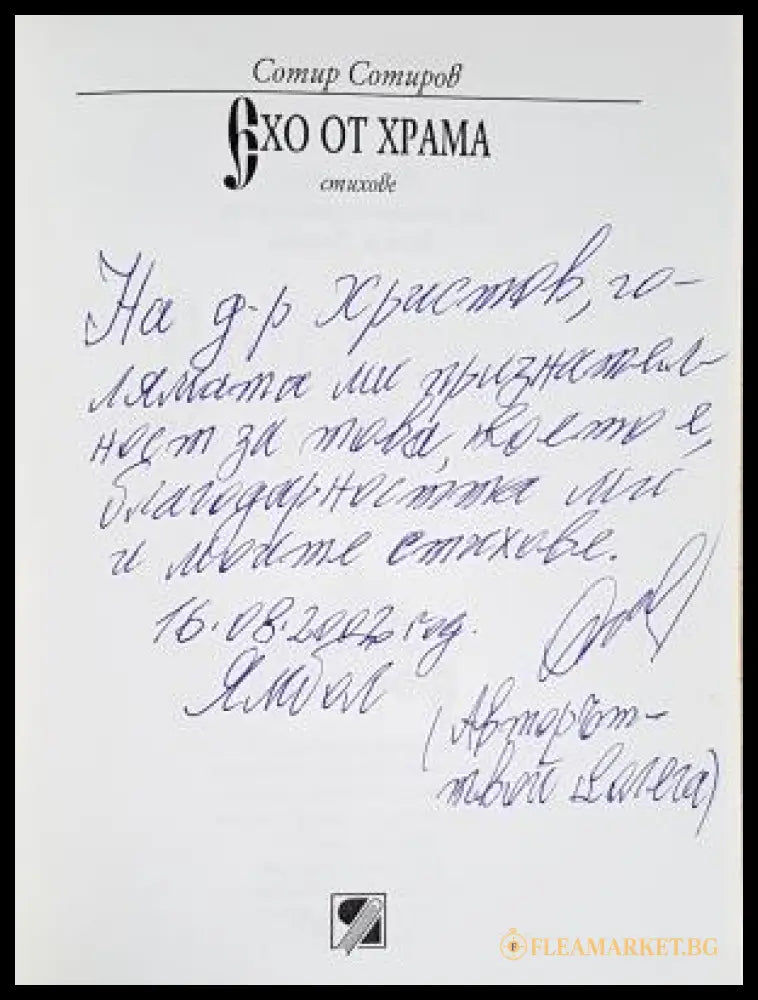 Сотир Сотиров
ЕХО ОТ ХРАМА
стихове
На д-р Христов, го-
лямата ми признател-
ност за това, което е,
благодарността ми
и моите стихове.
16.08.2002 год.
Ямбол
(Авторът-
твой колега)
FLEAMARKET.BG